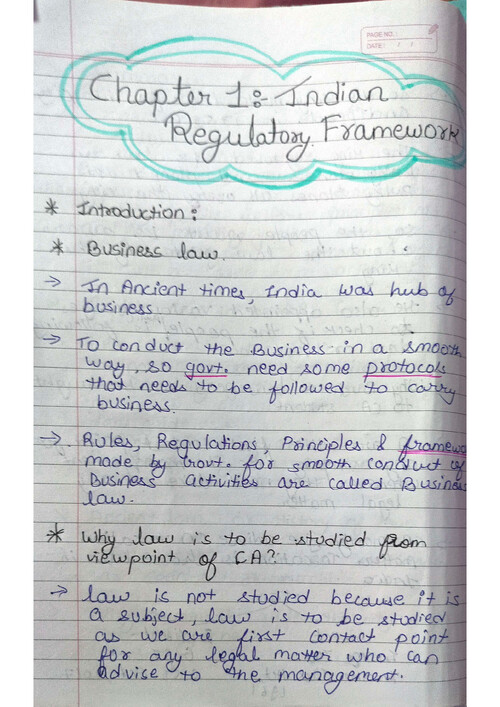 PAGE NO.:
DATE: / /
Chapter 1: Indian
Regulatory Framework
* Introduction:
* Business law.
→ In Ancient times, India was hub of
business
→ To conduct the Business in a smooth
way, so govt. need some protocols
that needs to be followed to carry
business.
→ Rules, Regulations, Principles & framewo
made by Govt. for smooth conduct of
Business activities are called Business
law.
* Why law is to be studied from
viewpoint of CA?
→ law is not studied because it is
a subject, law is to be studied
as we are first contact point
for any legal matter who can
advise to the management.